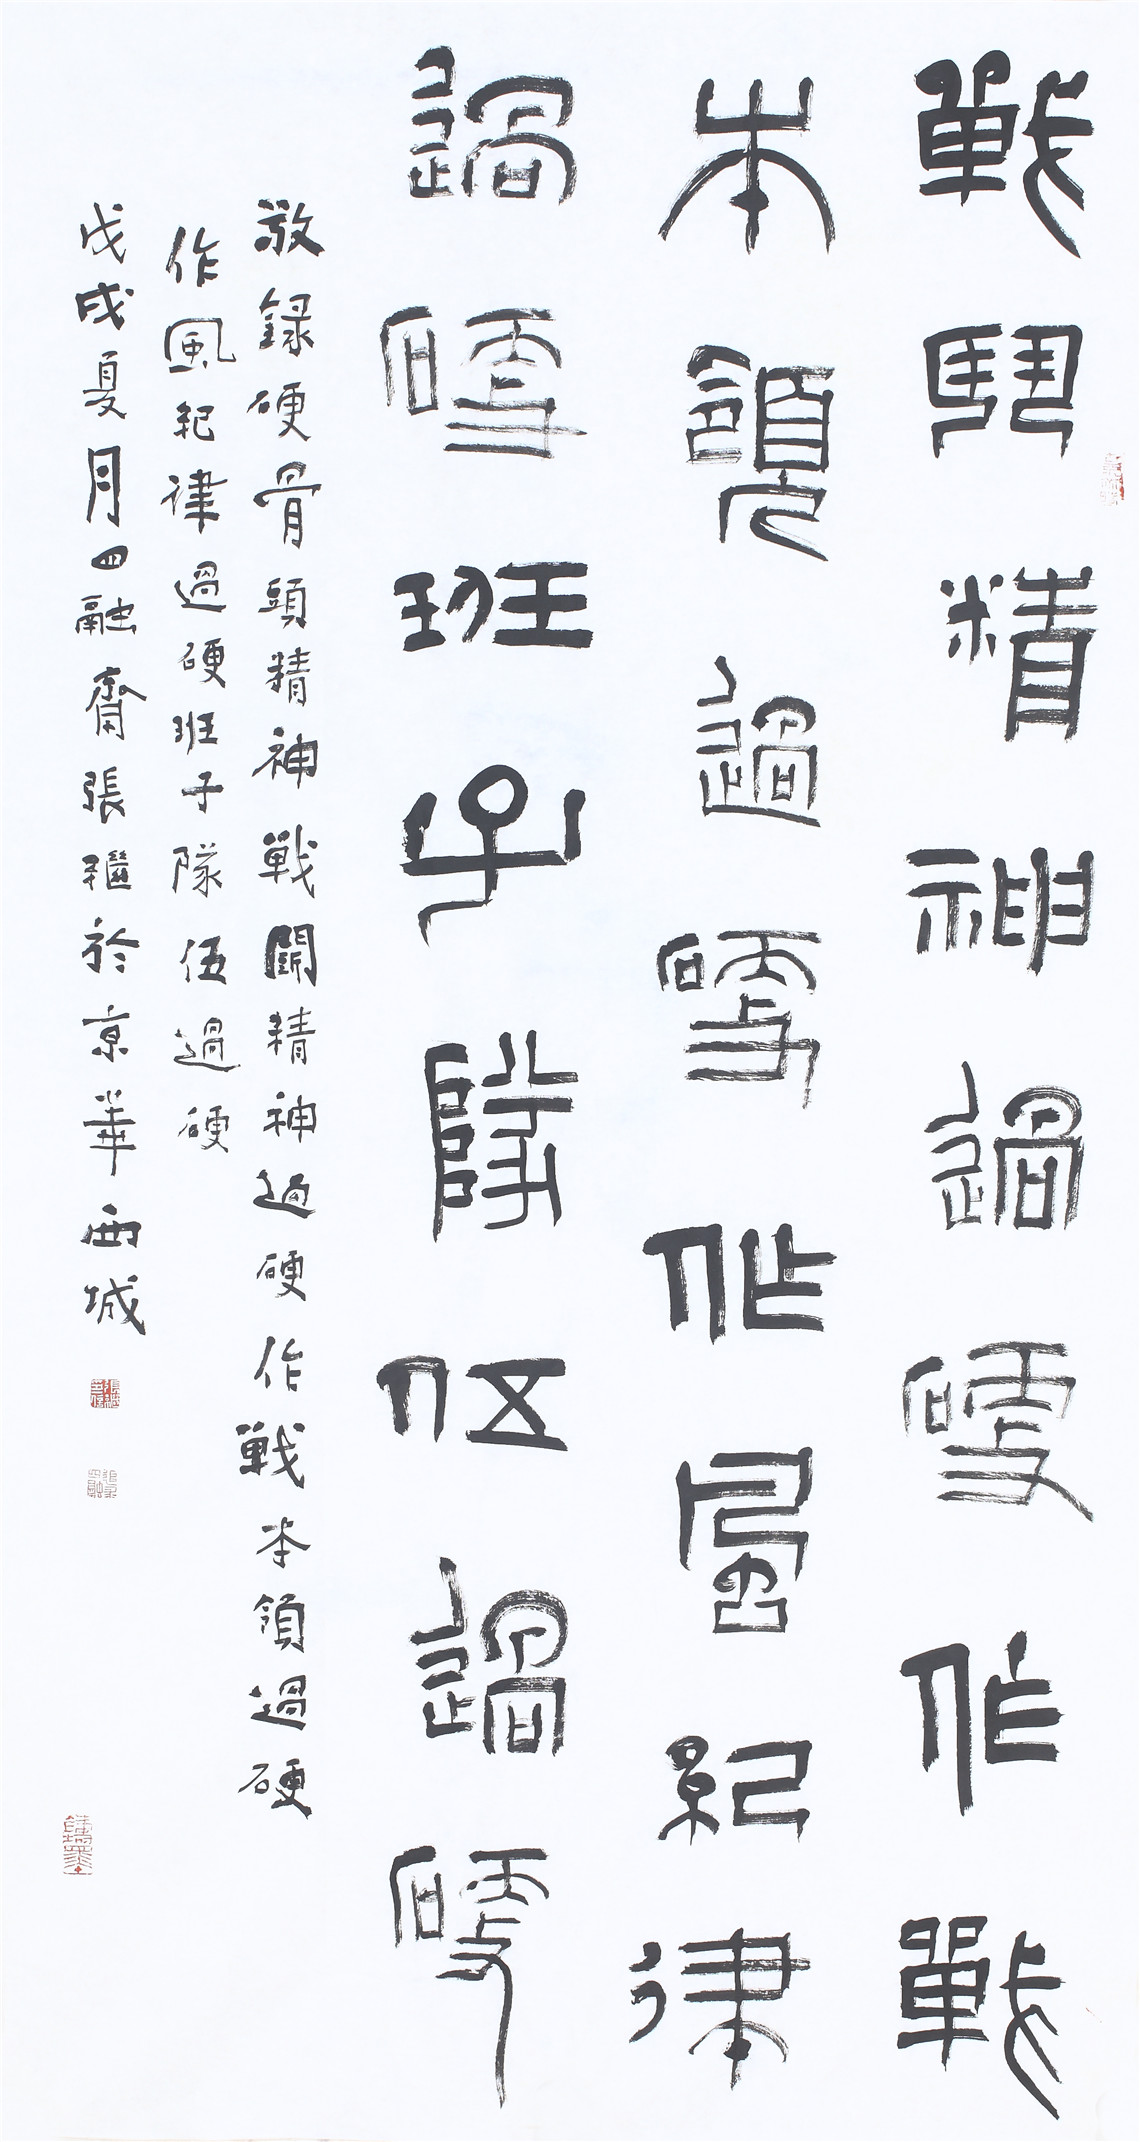 戰鬥精神過硬作戰
本領過硬作風紀律
過硬班子隊伍過硬
敬録硬骨頭精神戰鬪精神過硬作戰本領過硬
作風紀律過硬班子隊伍過硬
戊戌夏月四融齋張繼於京華西城